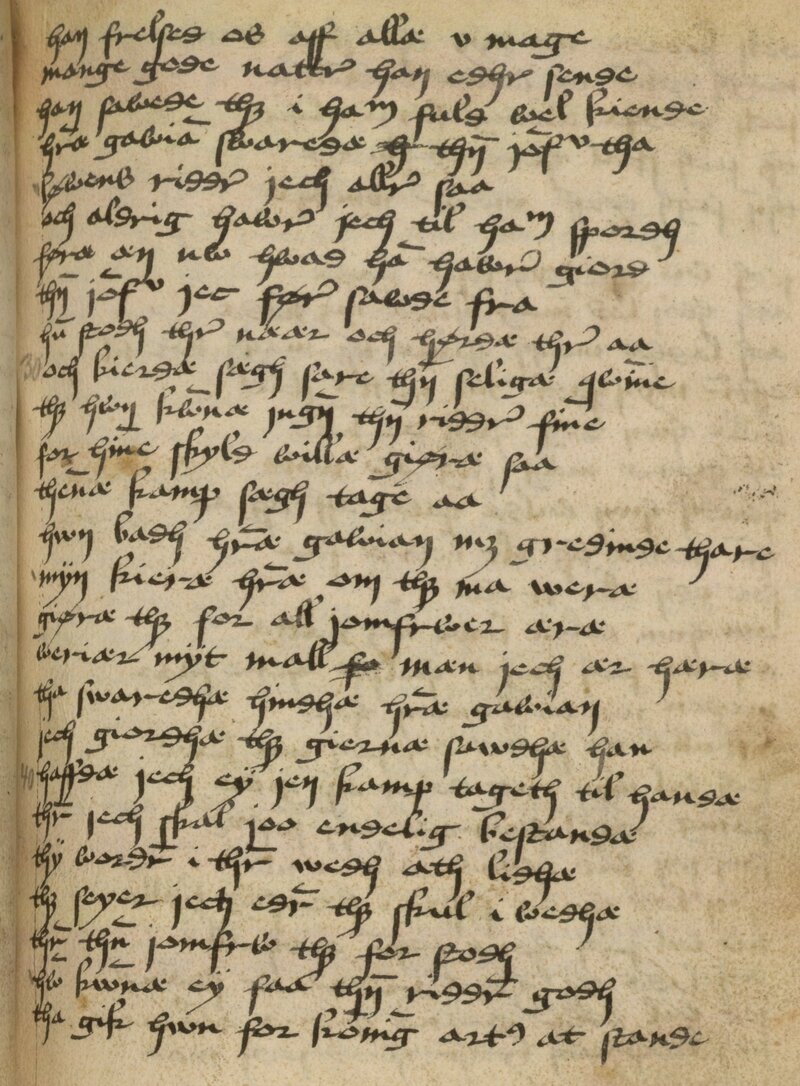 han frelsed os aff allæ v mage
mange gode natter han edhr sende
han sawde thz i ham fuld wel kiende
hræ gawiā swaredæ thn̄ jōfv tha
løwens ridder jech aller saa
och aldrig hawer jech til ham spordh
føræ æn nw hwad hā hawer giord
thn̄ jōfv jec før sawde fra
hū stodh ther næær och hørdæ ther aa
30
och kierdæ sægh sare thn̄ seligæ qwīne
thz hwn kwn̄æ jngn̄ thn̄ ridder fine
for hine skyld willæ giøræ saa
then̄æ kamp sægh tage aa
hwn badh hræ gawian mz gredinde thare
myn kieræ hræ om thz ma weræ
giøræ thz for all jomfrwer æræ
weriær myt mall mæn jech ær hæræ
tha swaredhæ hindhæ hræ gawian
jech giordhæ thz giernæ sawdhæ han
40
haffdæ jech ey jen kamp tageth til handæ
thr̄ jech skal joo endelig bestandæ
thy wordr̄ i thr̄ wedh ath lidhæ
thz seyer jech edr̄ thz skul i wedhæ
thr̄ thn̄ jomfrw thz for stodh
hw̄ kwn̄æ ey faa thn̄ riddr̄ godh
tha gik hwn for kōnīg art9 at stande